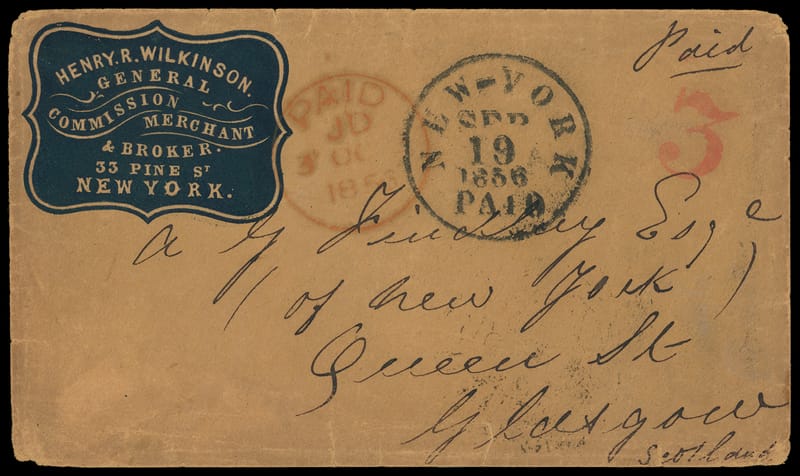 HENRY. R. WILKINSON.
GENERAL
COMMISSION MERCHANT
& BROKER.
33 PINE ST
NEW YORK.
PAID
JD
3 OC
185
NEW-YORK
SEP
19
1856
PAID
Paid
3
A G Findlay Esqe
(of New York)
Queen St
Glasgow
Scotland